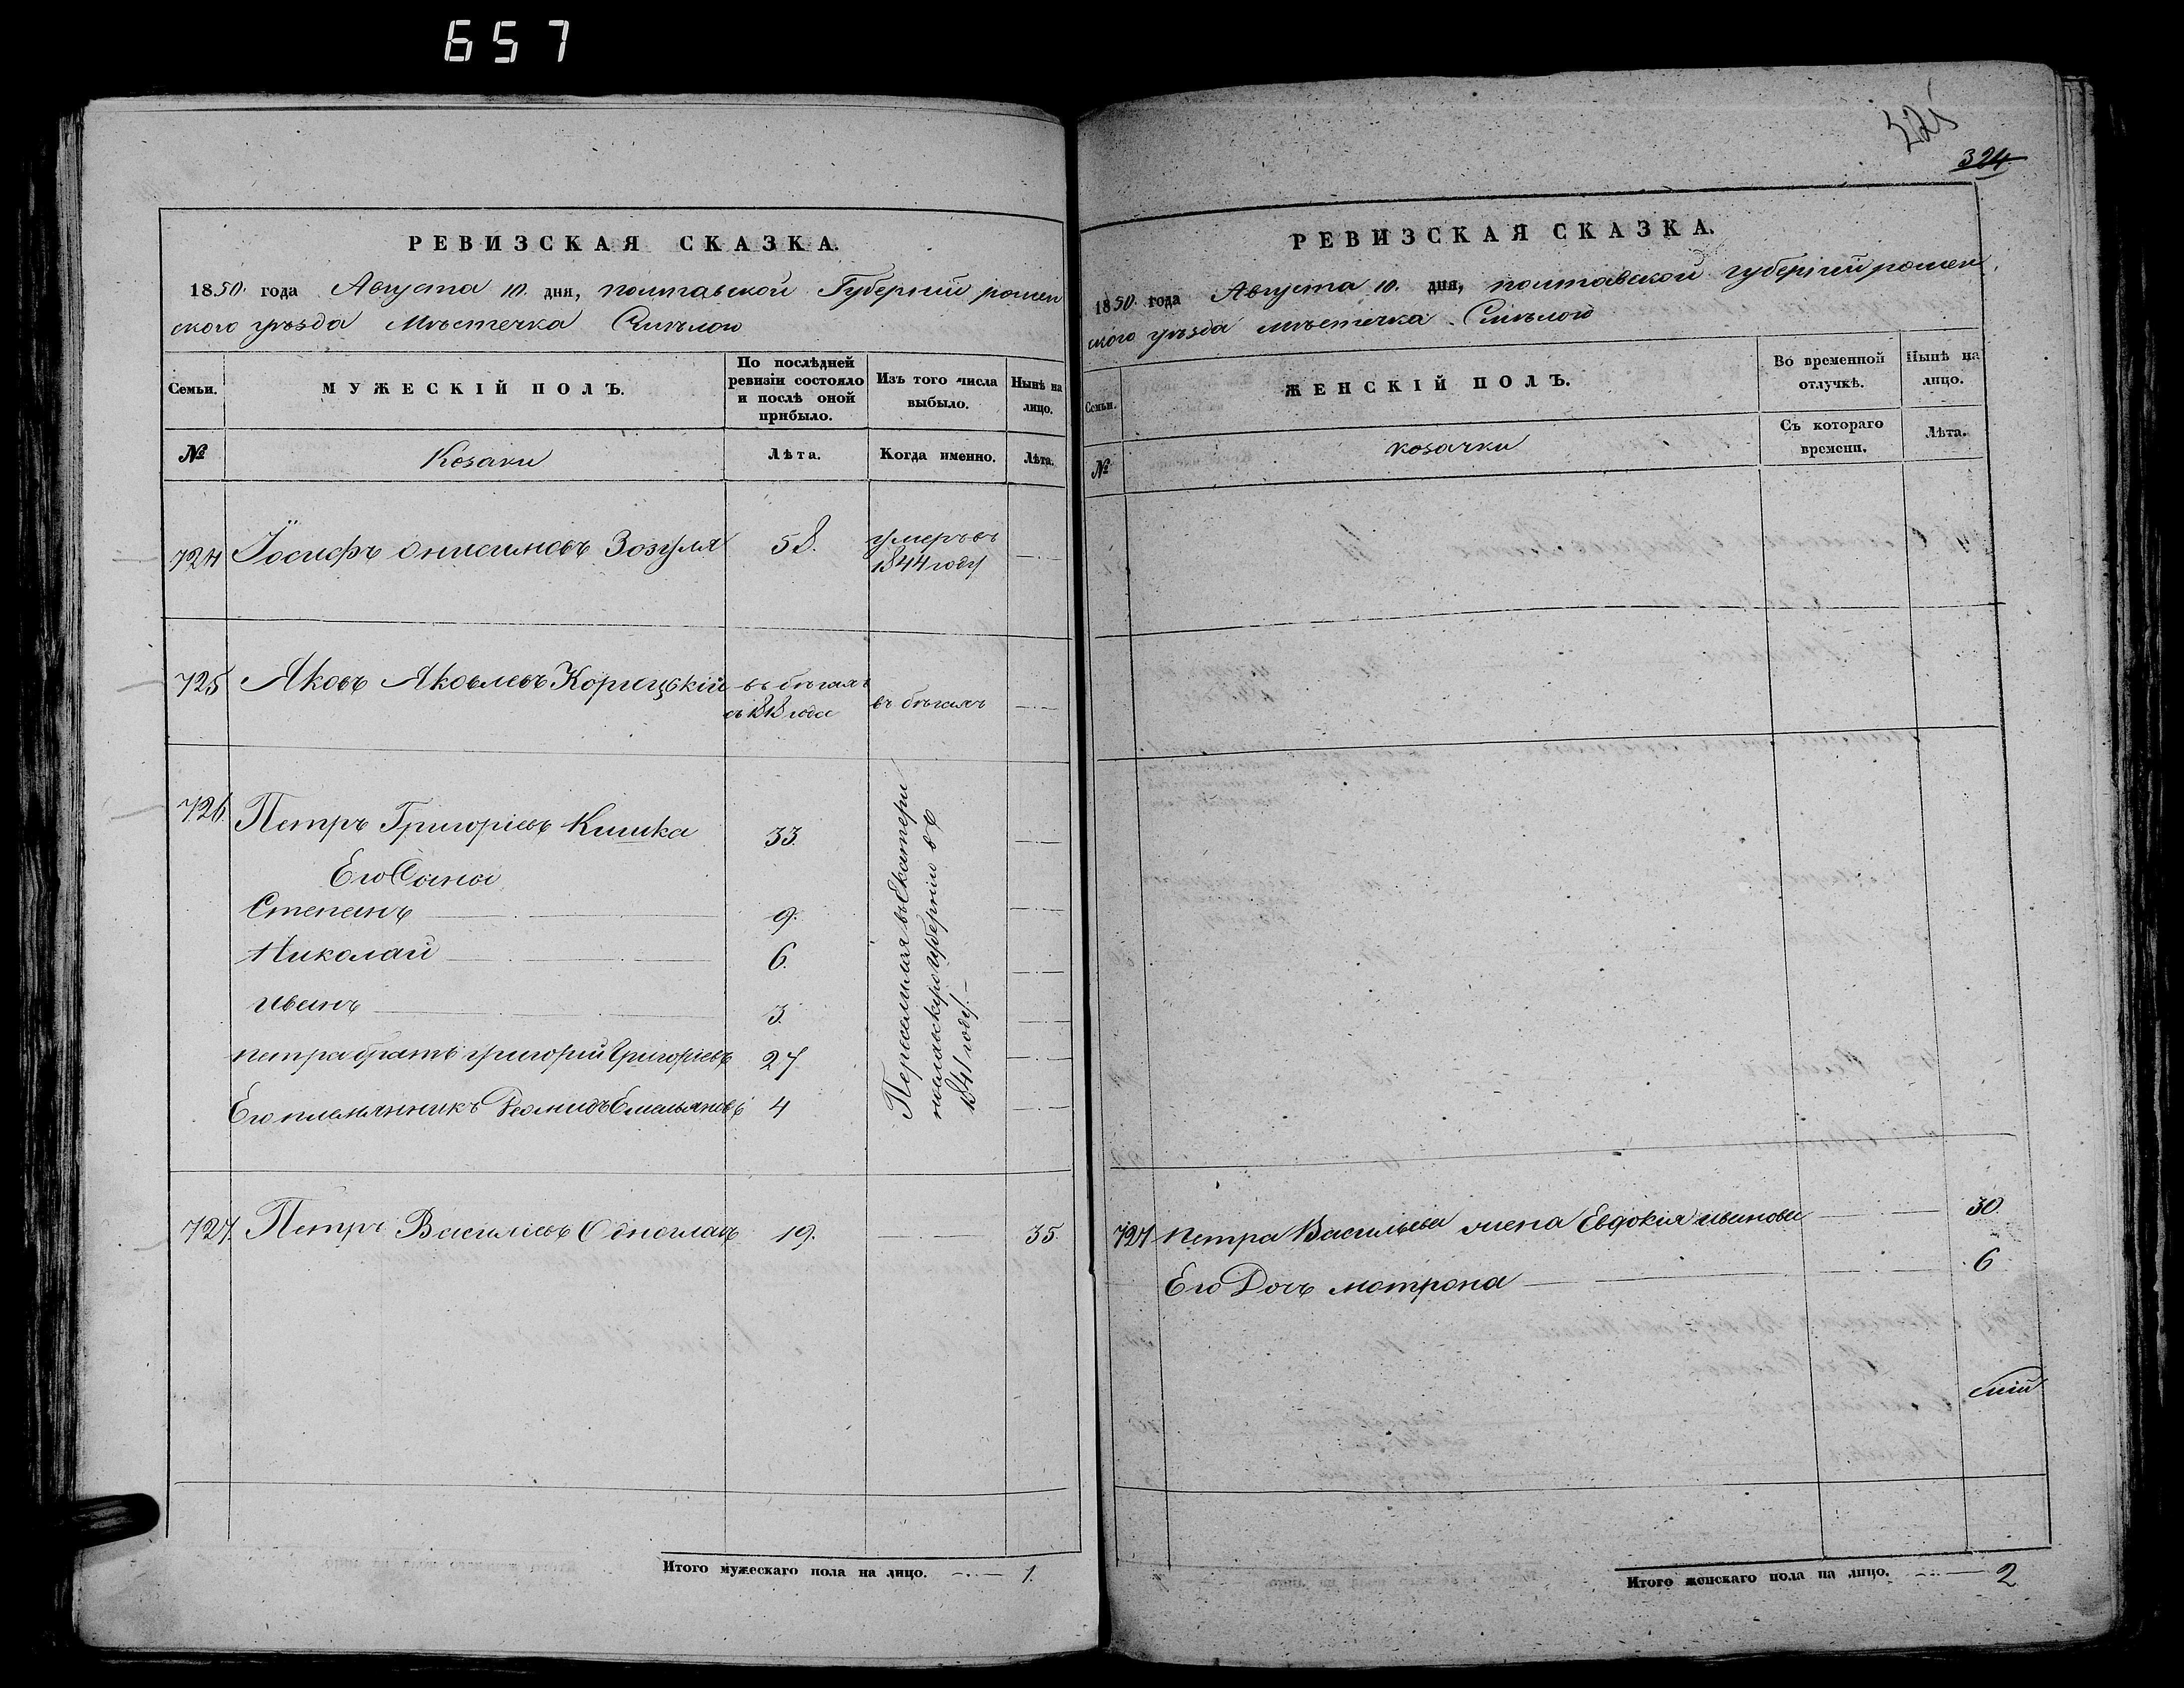 657
РЕВИЗСКАЯ СКАЗКА.
1850. года Августа 10. дня, полтавской Губерніи ромен
ского уѣзда Мѣстечка Смѣлого
Семьи.
МУЖЕСКІЙ ПОЛЪ.
По послѣдней
ревизіи состояло
и послѣ оной
прибыло.
Изъ того числа
выбыло.
Нынѣ на
лицо.
№
Козаки
Лѣта.
Когда именно.
Лѣта.
724 Іосифъ Онисимовъ Зозуля 58. умеръ въ
1844 году
725 Яковъ Яковлевъ Корецскій въ бѣгахъ
въ бѣгахъ
726. Петръ Григоріевъ Кишка 33.
Его Сыны
Степанъ 9.
Николай 6.
Иванъ 3.
петра братъ григорій Григоріевъ 27
Его племянникъ Емельяновъ 4
Переселился въ Екатери
нославскую губернію въ
1841 году.
727. Петръ Василіевъ 19. 35.
Итого мужескаго пола на лицо. 1.
325
324
РЕВИЗСКАЯ СКАЗКА.
1850. года Августа 10. дня, полтавской губерніи ромен
ского уѣзда мѣстечка Смѣлого
Семьи.
ЖЕНСКІЙ ПОЛЪ.
Во временной
отлучкѣ.
Нынѣ на
лицо.
№
козачки
Съ котораго
времени.
Лѣта.
727 петра Васильева жена Евдокія иванова 30
Его Дочь мотрона 6
Итого женскаго пола на лицо. 2